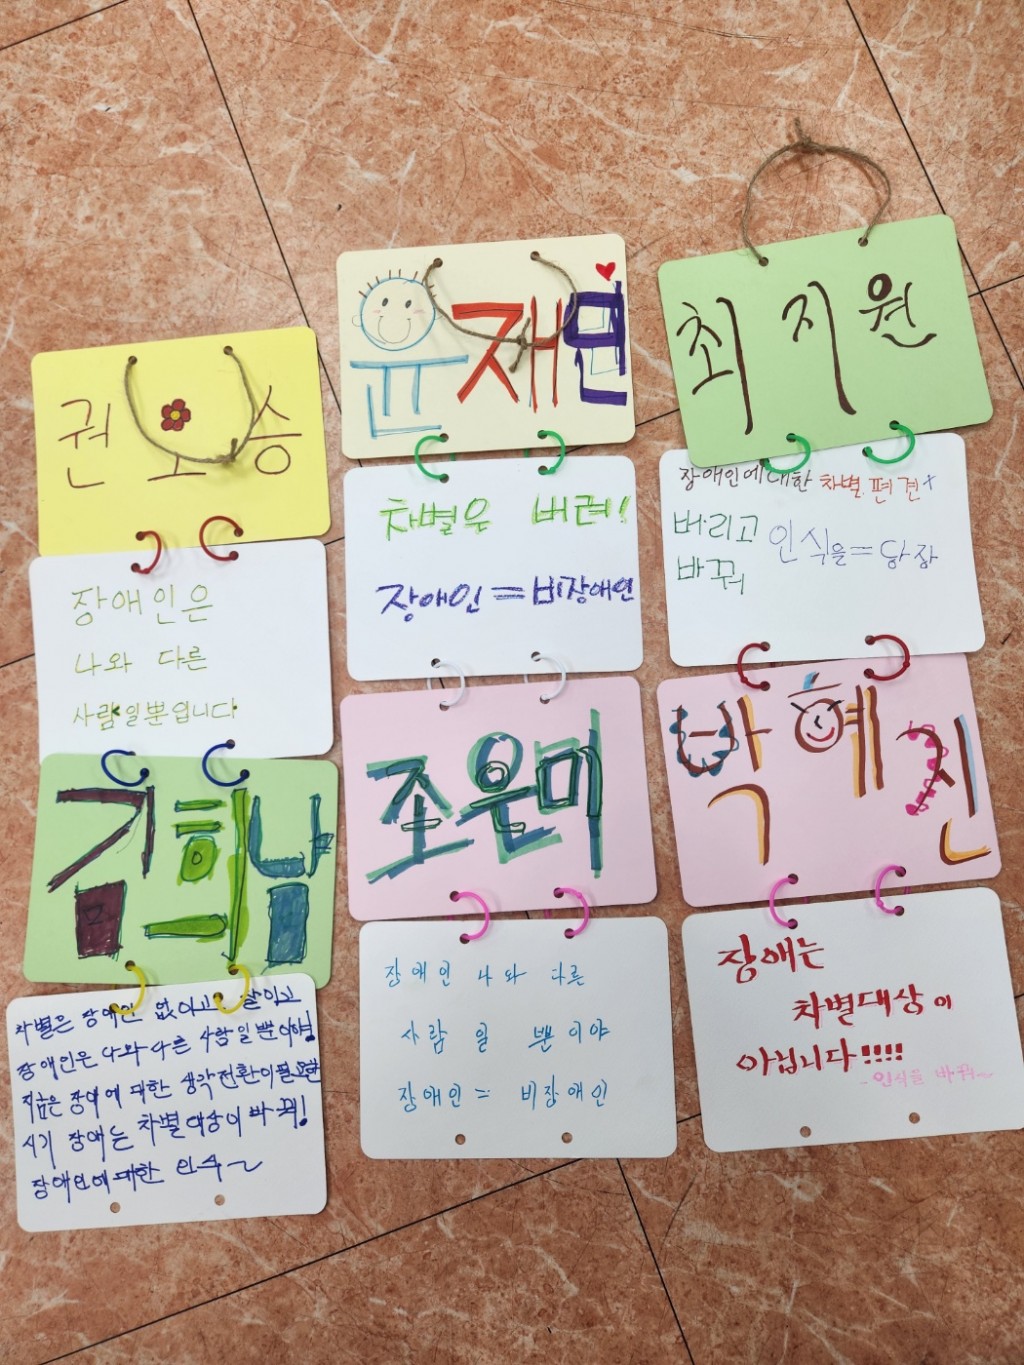 권 오 승
장애인은
나와 다른
사람일뿐입니다
김희남
차별은 장애인 없이고, 말이고
장애인은 나와 다른 사람일뿐이형
지금은 장애에 대한 생각전환이 필요한
시기 장애는 차별대상이 바꿔!
장애인에 대한 인수~
윤재연
차별은 버려!
장애인=비장애인
조은미
장애인 나와 다른
사람 일 뿐이야
장애인 = 비장애인
최 지 원
장애인에대한 차별.편견x
버리고 인식을=당장
바꿔
박혜진
장애는
차별대상이
아닙니다!!!!
-인식을 바꿔~